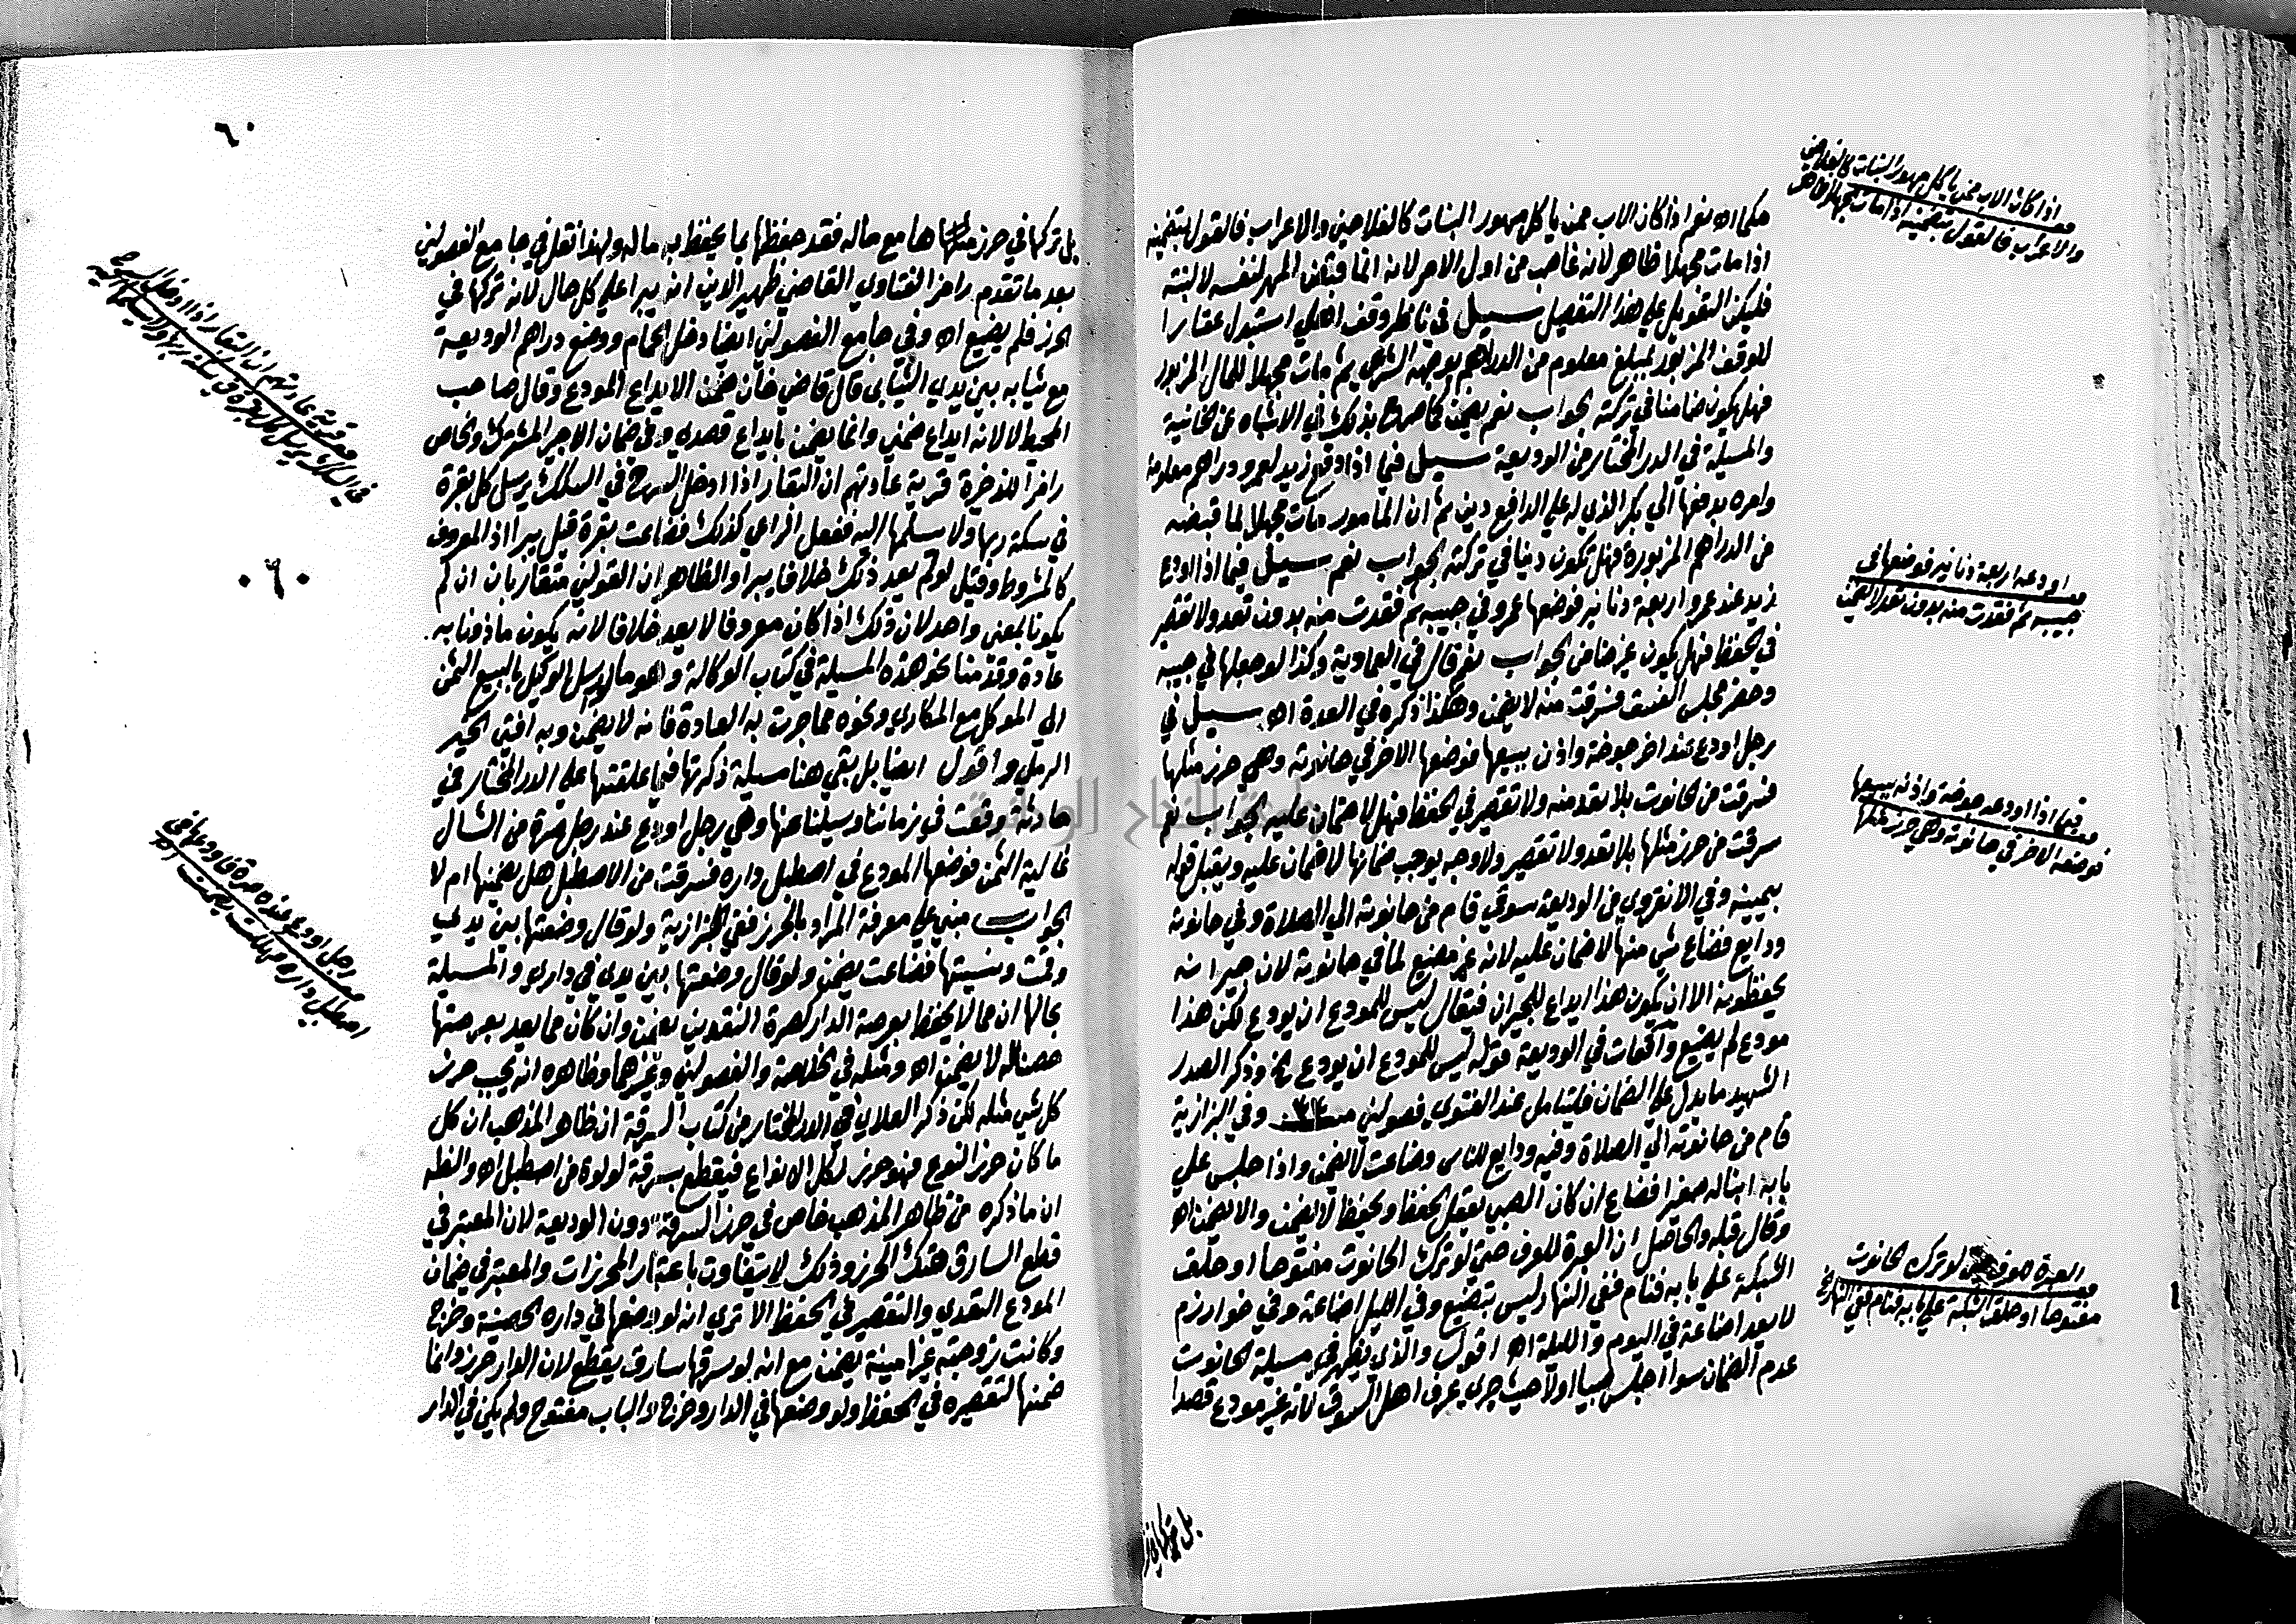 حكما اه نعم اذا كان الاب ممن ياكل مهور البنات كالفلاحين والاعراب فالقول بتضمينه
اذا مات مجهلا ظاهر لانه غاصب من اول الامر لانه انما قبض المهر لنفسه لا لبنته
فليكن التعويل على هذا التفصيل سيل في ناظر وقف اهلي استبدل عقارا
للوقف المزبور بمبلغ معلوم من الدراهم بوجهه الشرعي ثم مات مجهلا للمال المزبور
فهل يكون ضامنا في تركته الجواب نعم يضمن كما صرح بذلك في الاشباه عن الخانية
والمسيلة في الدر المختار من الوديعة سيل فيما اذا دفع زيد لعمرو دراهم معلومة
وامره بدفعها الي بكر الذي له على الدافع دين ثم ان المامور مات مجهلا لما قبضه
من الدراهم المزبورة فهل تكون دينا في تركته الجواب نعم سيل فيما اذا اودع
زيد عند عمرو اربعة دنانير فوضعها عمرو في جيبه ثم فقدت منه بدون تعد ولا تقصير
في الحفظ فهل يكون غير ضامن الجواب نعم قال في العمادية وكذا لو جعلها في جيبه
وحضر مجلس الفسق فسرقت منه لا يضمن وهكذا ذكره في العدة اه سيل في
رجل اودع عند اخر جوخة واذن ببيعها فوضعها الاخر في حانوته وهي حرز مثلها
فسرقت من الحانوت بلا تعد منه ولا تقصير في الحفظ فهل لا ضمان عليه الجواب نعم
سرقت من حرز مثلها بلا تعد ولا تقصير ولا وجه يوجب ضمانها لا ضمان عليه ويقبل قوله
بيمينه وفي الانقروي من الوديعة سوقي قام من حانوته الي الصلاة وفي حانوته
ودايع فضاع شي منها لا ضمان عليه لانه غير مضيع لما في حانوته لان جيرانه
يحفظونه الا ان يكون هذا ايداع للجيران فيقال ليس للمودع ان يودع لكن هذا
مودع لم يضيع واقعات في الوديعة قوله ليس للمودع ان يودع الخ وذكر الصدر
الشهيد ما يدل على الضمان فليتامل عند الفتوي فصولين من وفي البزازية
قام من حانوته الي الصلاة وفيه ودايع للناس وضاعت لا يضمن واذا جلس علي
بابه ابنا له صغيرا فضاع ان كان الصبي يعقل الحفظ ويحفظ لا يضمن والا يضمن اه
وقال قبله والحاصل ان العبرة للعرف حتى لو ترك الحانوت مفتوحا او علق
الشبكة علي بابه فنام ففي النهار ليس بتضييع وفي الليل اضاعة وفي خوارزم
لا يعد اضاعة في اليوم والليلة اه اقول والذي يظهر في مسيلة الحانوت
عدم الضمان سوا اجلس صبيا اولا حيث جري عرف اهل السوق لانه غير مودع قصدا
بل تركها في
اذا كان الاب ممن ياكل مهور البنات كالفلاحين
والاعراب فالقول بتضمينه اذا مات مجهلا ظاهر
اودعه اربعة دنانير فوضعها في
جيبه ثم فقدت منه بدون تعد لا يضمن
فيما اذا اودعه جوخة واذنه ببيعها
فوضعها الاخر في حانوته وهي حرز مثلها
العبرة للعرف حتى لو ترك الحانوت
مفتوحا او علق الشبكة علي بابه فنام ففي النهار الخ
٦٠
بل تركها في حرز مثلها مع ماله فقد حفظها بما يحفظ به ماله ولهذا نقل في جامع الفصولين
بعد ما تقدم رامزا لفتاوي القاضي ظهير الدين انه يبرا على كل حال لانه تركها في
الحرز فلم يضيع اه وفي جامع الفصولين ايضا دخل الحمام ووضع دراهم الوديعة
مع ثيابه بين يدي الثيابي قال قاضي خان ضمن الايداع المودع وقال صاحب
المحيط لا لانه ايداع ضمني وانما يضمن بايداع قصدي وفي ضمان الاجير المشترك والخاص
رامزا للذخيرة قرية عادتهم ان البقار اذا ادخل السرح في السكك يرسل كل بقرة
في سكة ربها ولا يسلمها اليه ففعل الراعي كذلك فضاعت بقرة قيل يبرا اذ المعروف
كالمشروط وقيل لو لم يعد ذلك خلافا يبرا والظاهر ان القولين متقاربان ان لم
يكونا بمعنى واحد لان ذلك اذا كان معروفا لا يعد خلافا لانه يكون ماذونا به
عادة وقدمنا نحو هذه المسيلة في كتاب الوكالة وهو ما لو ارسل الوكيل بالبيع الثمن
الي الموكل مع المكاري ونحوه مما جرت به العادة فانه لا يضمن وبه افتي الخير
الرملي واقول ايضا بل بقي هنا مسيلة ذكرتها فيما علقته على الدر المختار في
حادثة وقعت في زماننا وسيلنا عنها وهي رجل اودع عند رجل صرة من الشال
غالية الثمن فوضعها المودع في اصطبل داره فسرقت من الاصطبل هل يضمنها ام لا
الجواب مبني علي معرفة المراد بالحرز ففي البزازية ولو قال وضعتها بين يدي
وقمت ونسيتها فضاعت يضمن ولو قال وضعتها بين يدي في داري والمسيلة
بحالها ان مما لا يحفظ بعرصة الدار كصرة النقدين يضمن وان كان مما يعد بعرصتها
حصنا له لا يضمن اه ومثله في الخلاصة والفصولين وغيرهما وظاهره انه يجب حرز
كل شي مثله لكن ذكر العلاي في الدر المختار من كتاب السرقة ان ظاهر المذهب ان كل
ما كان حرز النوع فهو حرز لكل الانواع فيقطع بسرقة لولوة من اصطبل اه والظاهر
ان ما ذكره من ظاهر المذهب خاص في حرز السرقة دون الوديعة لان المعتبر في
قطع السارق هتك الحرز وذلك لا يتفاوت باعتبار المحرزات والمعتبر في ضمان
المودع التعدي والتقصير في الحفظ الا تري انه لو وضعها في داره الحصينة وخرج
وكانت زوجته غير امينة يضمن مع انه لو سرقها سارق يقطع لان الدار حرز وانما
ضمنها لتقصيره في الحفظ ولو وضعها في الدار وخرج والباب مفتوح ولم يكن في الدار
قرية عادتهم ان البقار اذا ادخل السرح
في السكك يرسل كل بقرة في سكة ربها ولا يسلمها اليه
٠٦٠
رجل اودع عنده صرة فاودعها في
اصطبل داره فهلكت يضمن ام لا